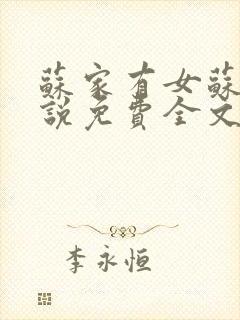 蘇家有女蘇
說免費全文
李永恒